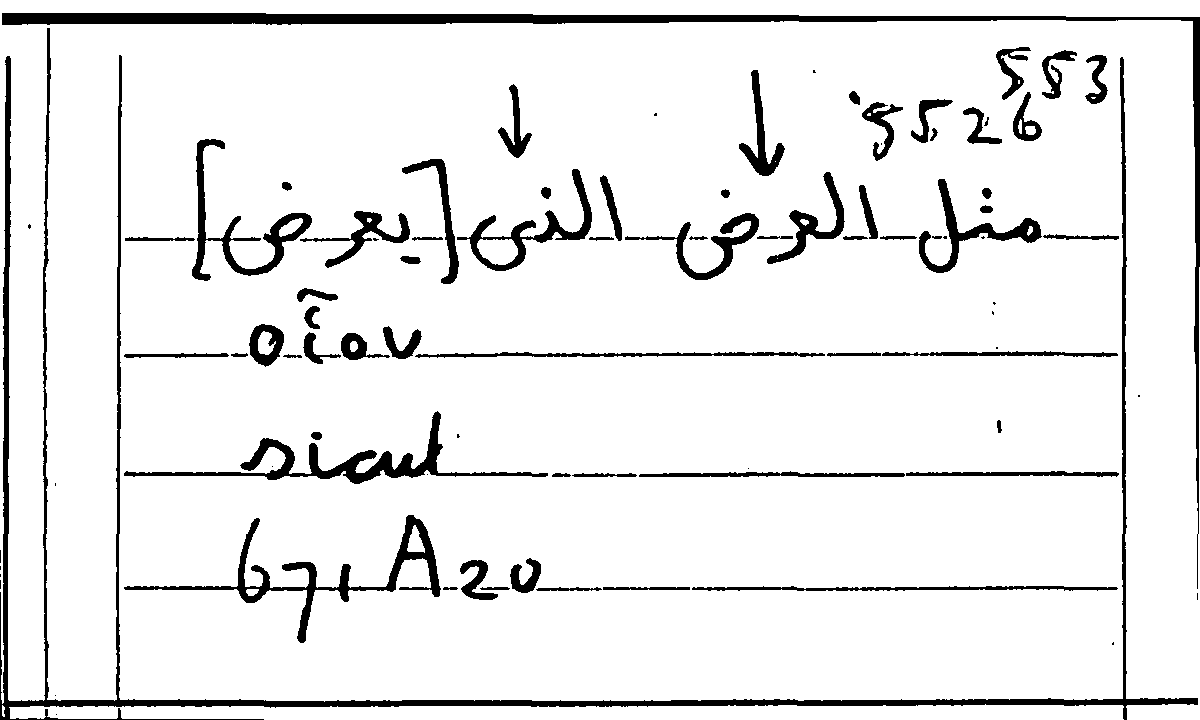 553
5526
مثل العرض الذى [يعرض]
οἷον
sicut
671A20